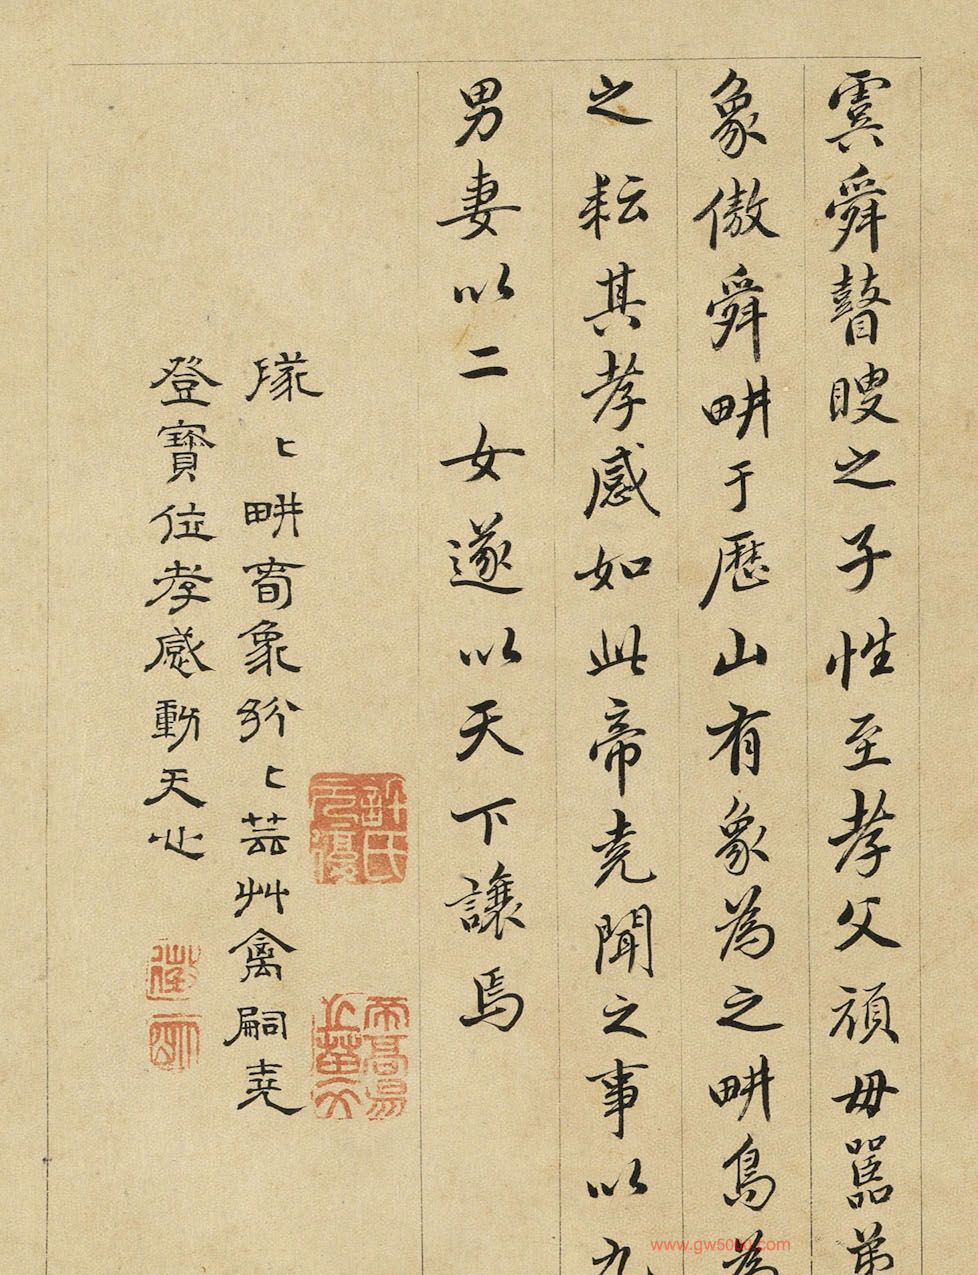 虞舜瞽瞍之子性至孝父頑母嚚弟
象傲舜畊于歷山有象為之畊鳥為
之耘其孝感如此帝堯聞之事以九
男妻以二女遂以天下讓焉
隊〻畊萅象紛〻芸艸禽嗣堯
登寶位孝感動天心
www.gw5000.com